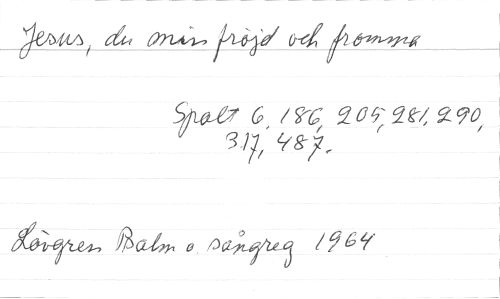 Jesus, du min fröjd och fromma
Spalt 6, 186, 205, 281, 290,
317, 487.
Lövgren Psalm o. sångreg 1964